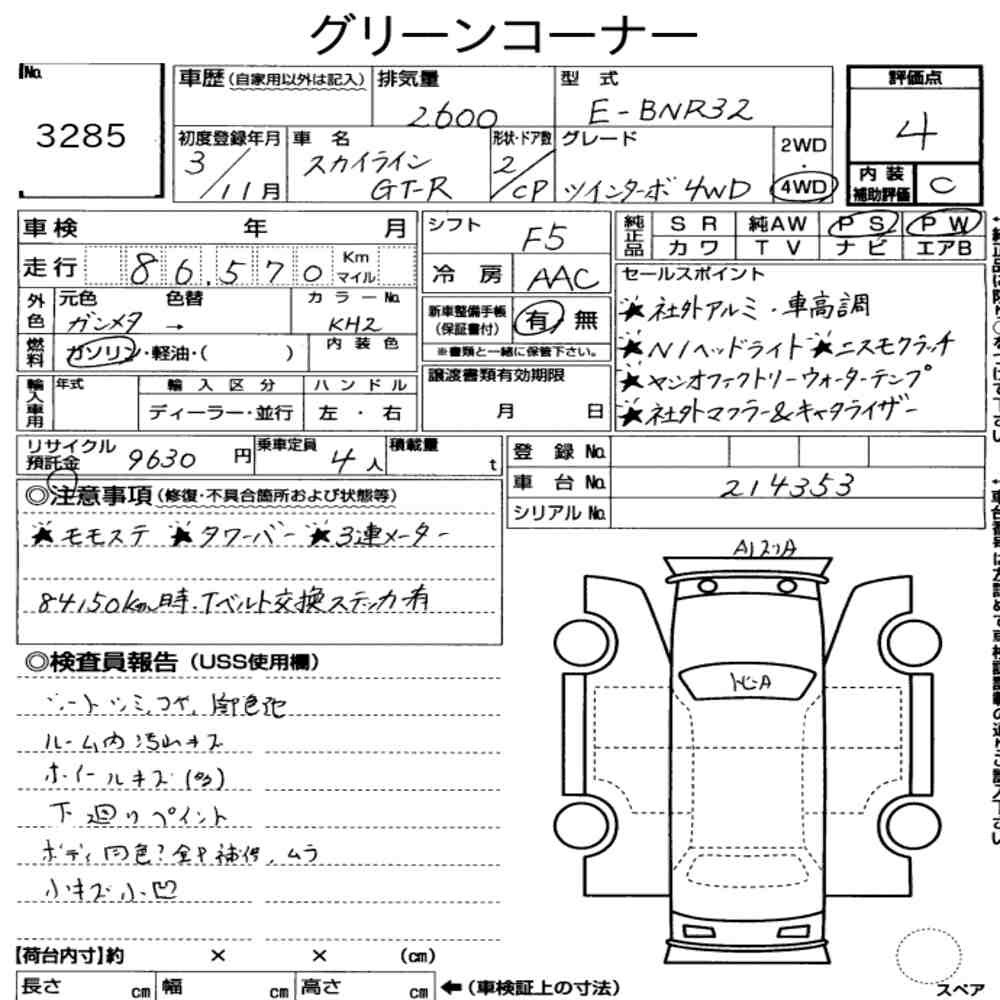 グリーンコーナー
No.
3285
車歴 (自家用以外は記入)
排気量
2600
型 式
E-BNR32
評価点
4
初度登録年月
3/11月
車 名
スカイライン
GT-R
形状・ドア数
2/CP
グレード
ツインターボ 4WD
2WD
・
4WD
内 装
補助評価
C
車検 年 月
走行 86.570 Km
マイル
シフト
F5
冷 房 AAC
純正品
S R 純AW P S P W
カワ T V ナビ エアB
外色
元色 色替 カラーNo.
ガンメタ → KH2
燃料
ガソリン・軽油・( )
内装色
新車整備手帳
(保証書付)
有 無
※書類と一緒に保管下さい。
セールスポイント
★社外アルミ・車高調
★N1ヘッドライト ★ニスモクラッチ
★マンオファクトリーウォーターテンプ
★社外マフラー&キャタライザー
輸入車用
年式
輸入区分
ハンドル
ディーラー・並行
左 ・ 右
譲渡書類有効期限
月 日
リサイクル
預託金
9630円
乗車定員
4人
積載量
t
登 録 No.
車 台 No. 214353
シリアル No.
◎注意事項 (修復・不具合箇所および状態等)
★モモステ ★タワーバー ★3連メーター
84150km時.Tベルト交換ステッカ有
◎検査員報告 (USS使用欄)
シートシミ,コゲ,
ルーム内汚れキズ
ホイールキズ(多)
下廻りペイント
ボディ同色?全P補修,ムラ
小キズ小凹
【荷台内寸】約 × × (cm)
長さ cm 幅 cm 高さ cm
←(車検証上の寸法)
スペア